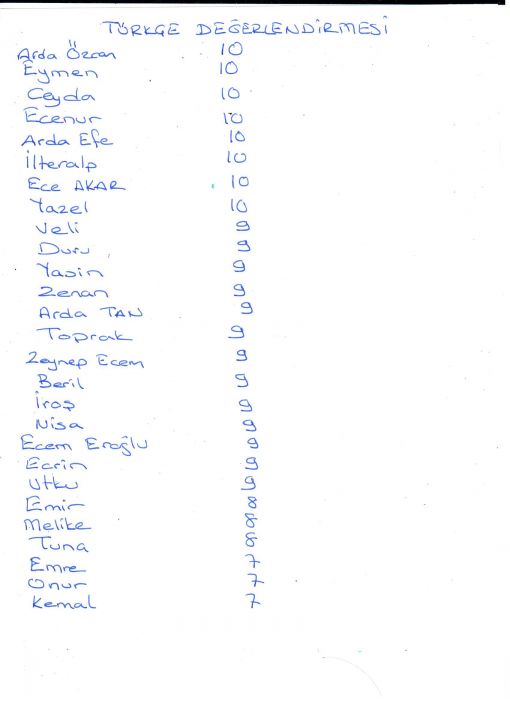 TÜRKÇE DEĞERLENDİRMESİ
Arda Özcan 10
Eymen 10
Ceyda 10
Ecenur 10
Arda Efe 10
İlteralp 10
Ece AKAR 10
Yazel 10
Veli 9
Duru 9
Yasin 9
Zenan 9
Arda TAN 9
Toprak 9
Zeynep Ecem 9
Beril 9
İroş 9
Nisa 9
Ecem Eroğlu 9
Ecrin 9
Utku 9
Emir 8
Melike 8
Tuna 8
Emre 7
Onur 7
Kemal 7